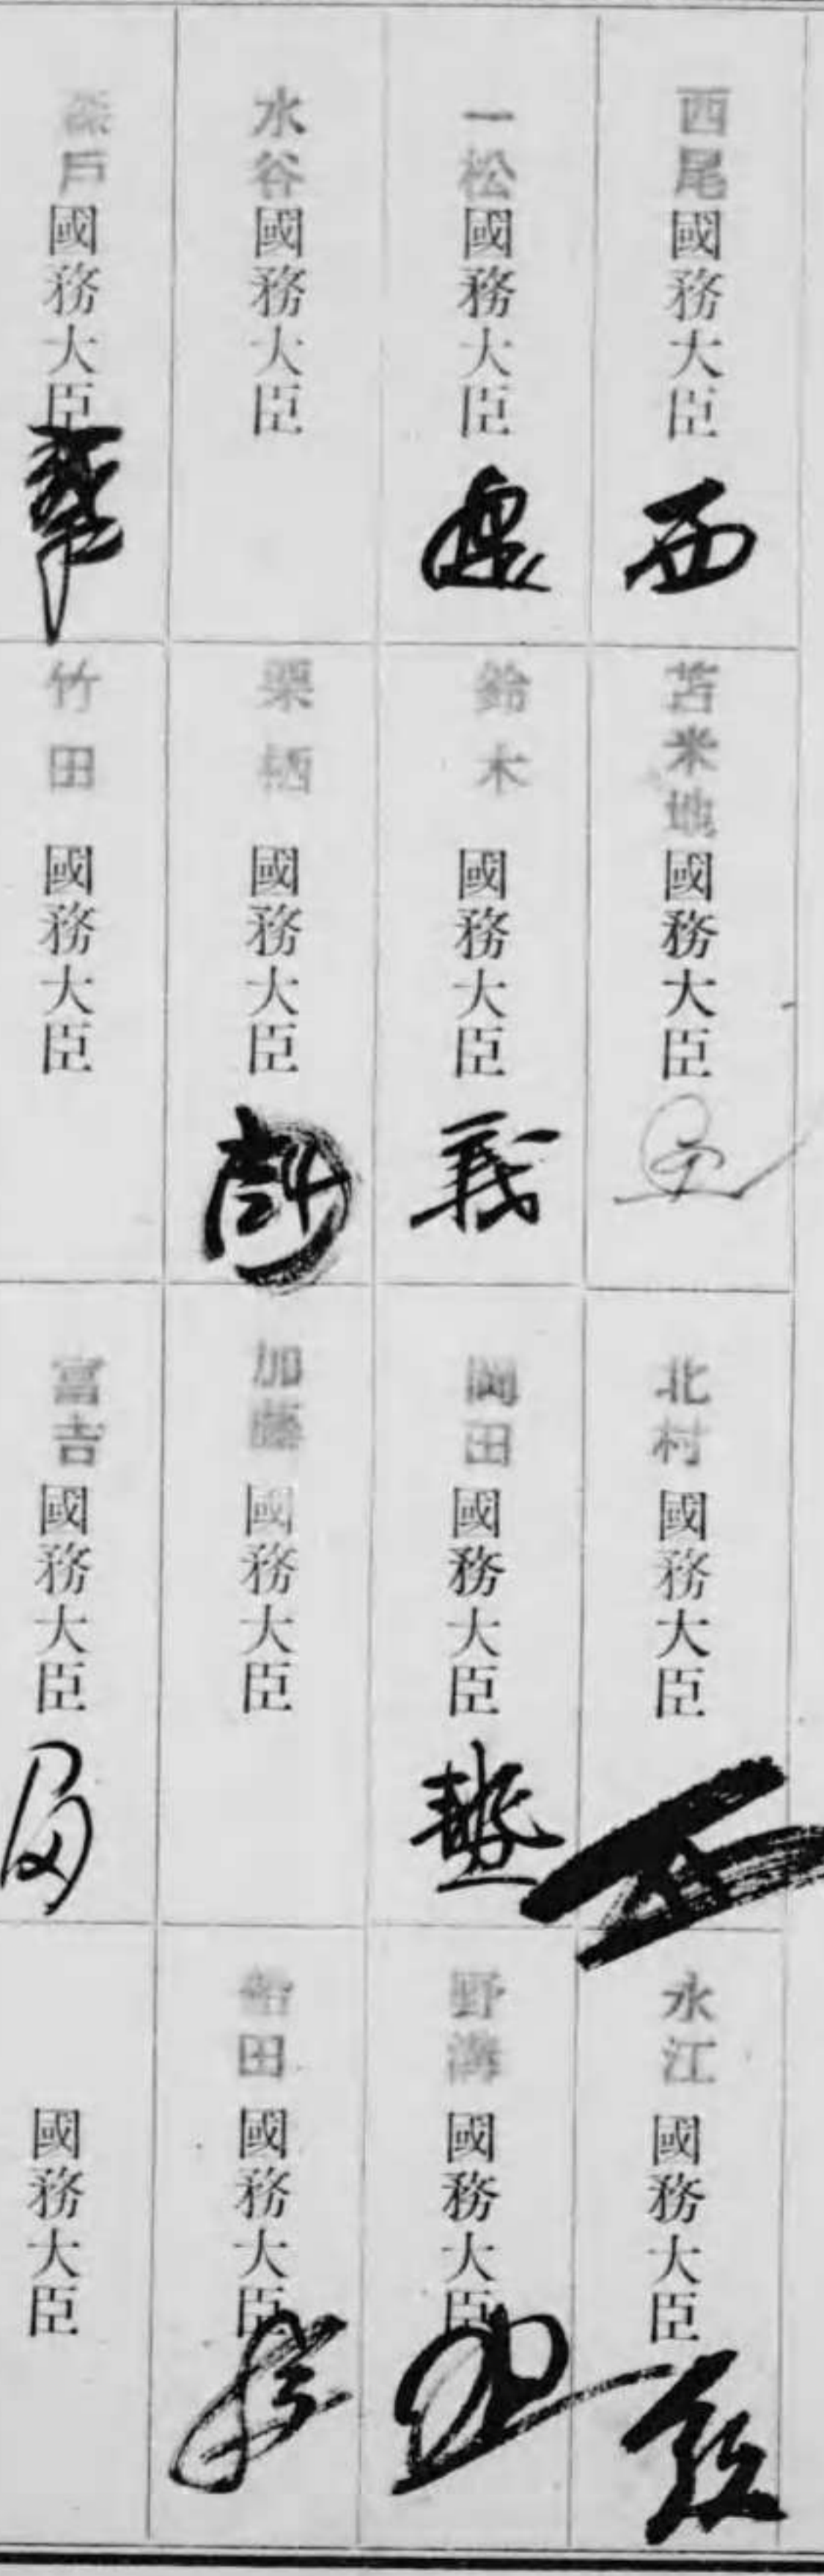 西尾國務大臣 西
苫米地國務大臣
北村國務大臣
永江國務大臣
一松國務大臣
鈴木國務大臣 義
岡田國務大臣 勢
野溝國務大臣
水谷國務大臣
栗栖國務大臣
加藤國務大臣
船田國務大臣
森戶國務大臣
竹田國務大臣
富吉國務大臣
國務大臣